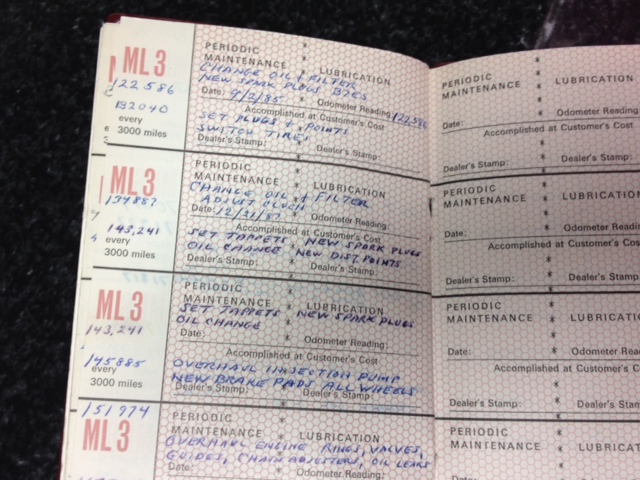 ML 3
122586
132040
every
3000 miles
PERIODIC
MAINTENANCE * LUBRICATION
CHANGE OIL & FILTER
NEW SPARK PLUGS B7ES
Date: 9/2/85 Odometer Reading: 122,586
Accomplished at Customer's Cost
SET PLUGS & POINTS
SWITCH TIRES
Dealer's Stamp: * Dealer's Stamp:
ML 3
137887
143,241
every
3000 miles
PERIODIC
MAINTENANCE * LUBRICATION
CHANGE OIL & FILTER
ADJUST CLUCH
Date: 12/21/87 Odometer Reading:
Accomplished at Customer's Cost
SET TAPPETS, NEW SPARK PLUGS
OIL CHANGE NEW DIST. POINTS
Dealer's Stamp: * Dealer's Stamp:
ML 3
143,241
145885
every
3000 miles
PERIODIC
MAINTENANCE LUBRICATION
SET TAPPETS NEW SPARK PLUGS
OIL CHANGE
Date: * Odometer Reading:
Accomplished at Customer's Cost
OVERHAUL INJSECTION PUMP
NEW BRAKE PADS ALL WHEELS
Dealer's Stamp: * Dealer's Stamp:
151974
ML 3
PERIODIC
MAINTENANCE * LUBRICATION
OVERHAUL ENGINE RINGS, VALVES,
GUIDES, CHAIN ADJUSTERS, OIL LEAKS
Date: Odometer Reading:
PERIODIC
MAINTENANCE * LUBRICATION
Date: * Odometer Reading
Accomplished at Customer's Cost
Dealer's Stamp: * Dealer's Stamp:
PERIODIC
MAINTENANCE * LUBRICATION
Date: * Odometer Reading
Accomplished at Customer's
Dealer's Stamp: * Dealer's Stamp:
PERIODIC
MAINTENANCE * LUBRICATION
Date: * Odometer Read
Accomplished at Customer
Dealer's Stamp: * Dealer's Stamp
PERIODIC
MAINTENANCE * LUBRICAT
Date: * Odometer